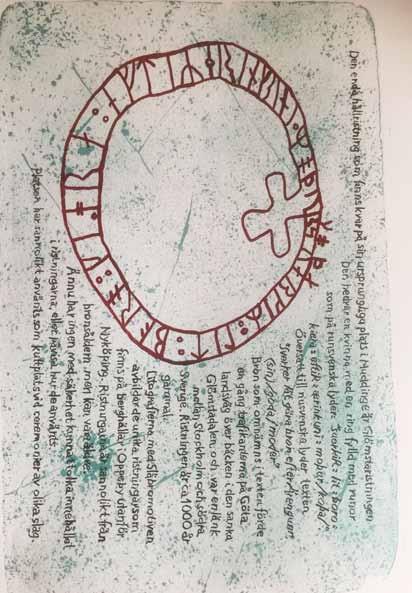 Den enda hällristning som finns kvar på sin ursprungliga plats i Huddinge är Glömstaristningen
Den hedrar en kvinna med en ring fylld med runor
som på runsvenska lyder
Översatt till nusvenska lyder texten
"Svahöt lät göra bron efter Ärengunn
(sin) goda moder"
Bron som omnämns i texten förde
en gång trafikanterna på Göta
landsväg över bäcken i den sanka
Glömstadalen och var en länk
mellan Stockholm och södra
Sverige. Ristningen är ca 1000 år
gammal.
Litografierna med Släbromotiven
avbildar de unika ristningar som
finns på berghällar i Oppeby utanför
Nyköping. Ristningarna är sannolikt från
bronsåldern, men kan vara äldre.
Ännu har ingen med säkerhet kunnat tolka innehållet
i ristningarna, eller hävda hur de använts.
Platsen har sannolikt använts som kultplats vid ceremonier av olika slag.